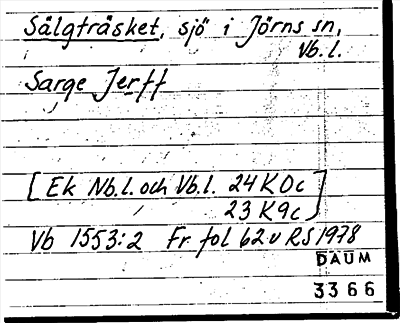 Sälgträsket, sjö i Jörns sn,
Vb.l.
Sarge Jerff
[Ek Nb.l. och Vb.l. 24K0c
23K9c]
Vb 1553:2 Fr fol 62v RS 1978
DAUM
3366